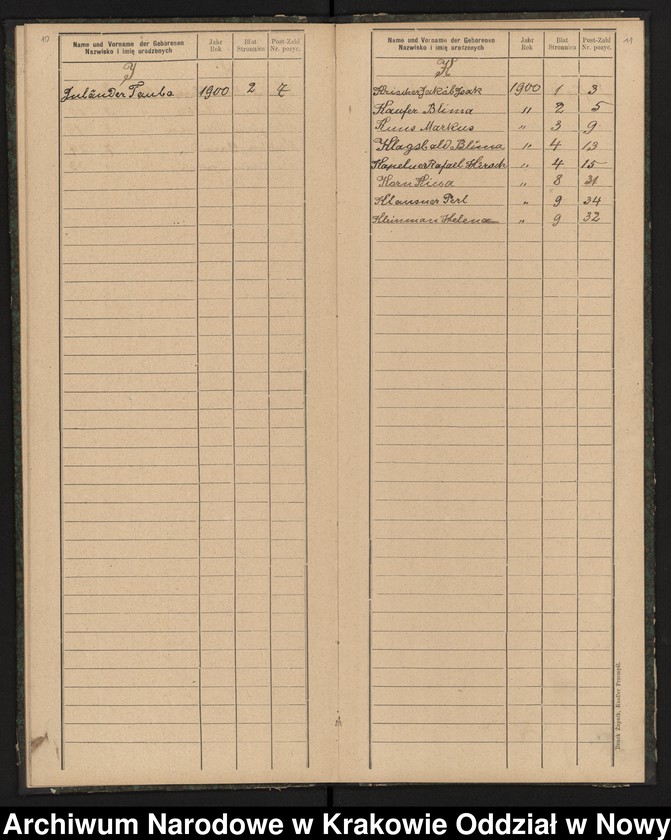 10
Name und Vorname der Geborenen Jahr Blat Post-Zahl
Nazwisko i imię urodzonych Rok Stronnica Nr. pozyc.
J
Inländer Tauba 1900 2 7
11
Name und Vorname der Geborenen Jahr Blat Post-Zahl
Nazwisko i imię urodzonych Rok Stronnica Nr. pozyc.
K
Jakób Izak 1900 1 3
Kaufer Blima " 2 5
Markus " 3 9
Klagsbald Blima " 4 13
Kapelner Rafael Hersch " 4 15
Korn " 8 31
Klausner Perl " 9 34
Kleinman Helena " 9 32
Druck Żupnik, Knoller Przemyśl.
Archiwum Narodowe w Krakowie Oddział w Nowy